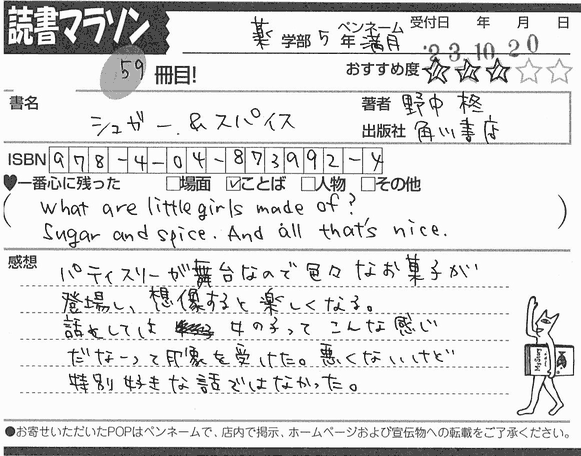 読書マラソン
薬 学部 5 年 ペンネーム 満月 受付日 年 月 日
'23.10.20
59 冊目!
おすすめ度 ★★★☆☆
書名 シュガー&スパイス
著者 野中 柊
出版社 角川書店
ISBN 978-4-04-873992-4
♥一番心に残った □場面 ☑ことば □人物 □その他
( What are little girls made of?
Sugar and spice. And all that's nice. )
感想
パティスリーが舞台なので色々なお菓子が
登場し、想像すると楽しくなる。
話としては 女の子ってこんな感じ
だなーって印象を受けた。悪くないけど
特別好きな話ではなかった。
My Story
●お寄せいただいたPOPはペンネームで、店内で掲示、ホームページおよび宣伝物への転載をご了承ください。